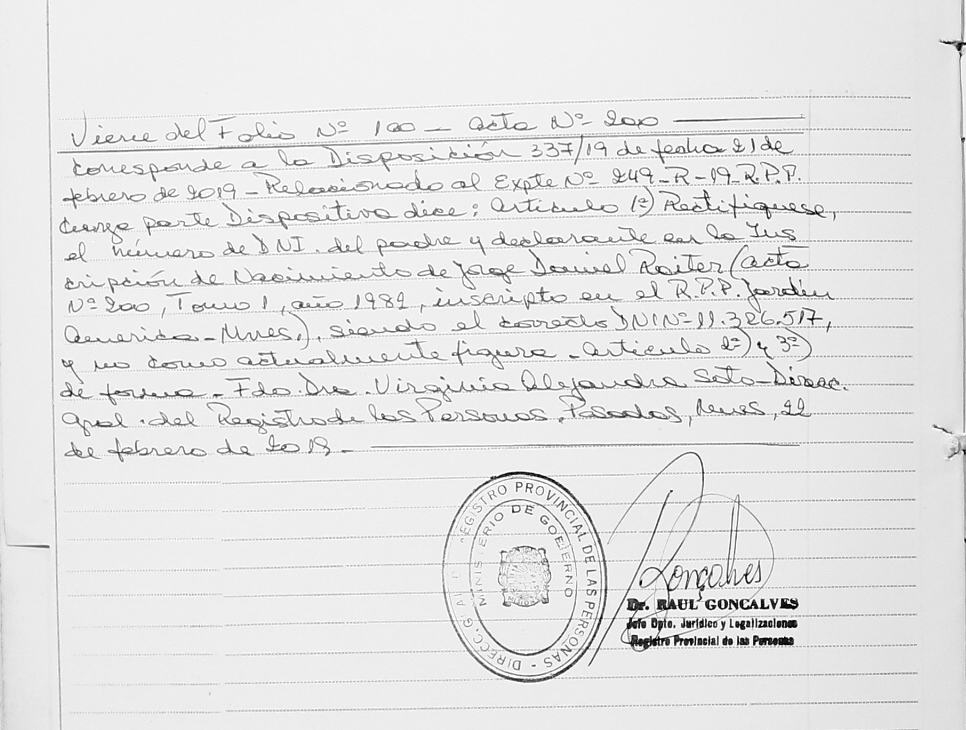 Viene del Folio Nº 100 — acta Nº 200 —
Corresponde a la Disposición 337/19 de fecha 21 de
febrero de 2019 - Relacionado al Expte Nº 249-R-19-R.P.P.
Cuya parte Dispositiva dice: Artículo 1º) Rectifíquese,
el número de DNI. del padre y declarante en la Ins
cripción de Nacimiento de Jorge Daniel Roiter (acta
Nº 200, Tomo 1, año 1982, inscripto en el R.P.P. Jardín
America - Mnes.), siendo el correcto DNI Nº 11.326.517,
y no como actualmente figura - Artículo 2º) y 3º)
de forma - Fdo. Dra. Virginia Alejandra Soto - Direc.
Gral. del Registro de las Personas. Posadas, Mnes, 22
de febrero de 2019. —
REGISTRO PROVINCIAL DE LAS PERSONAS - DIRECC. GRAL.
MINISTERIO DE GOBIERNO
Gonçalves
Dr. RAUL GONCALVES
Jefe Dpto. Jurídico y Legalizaciones
Registro Provincial de las Personas